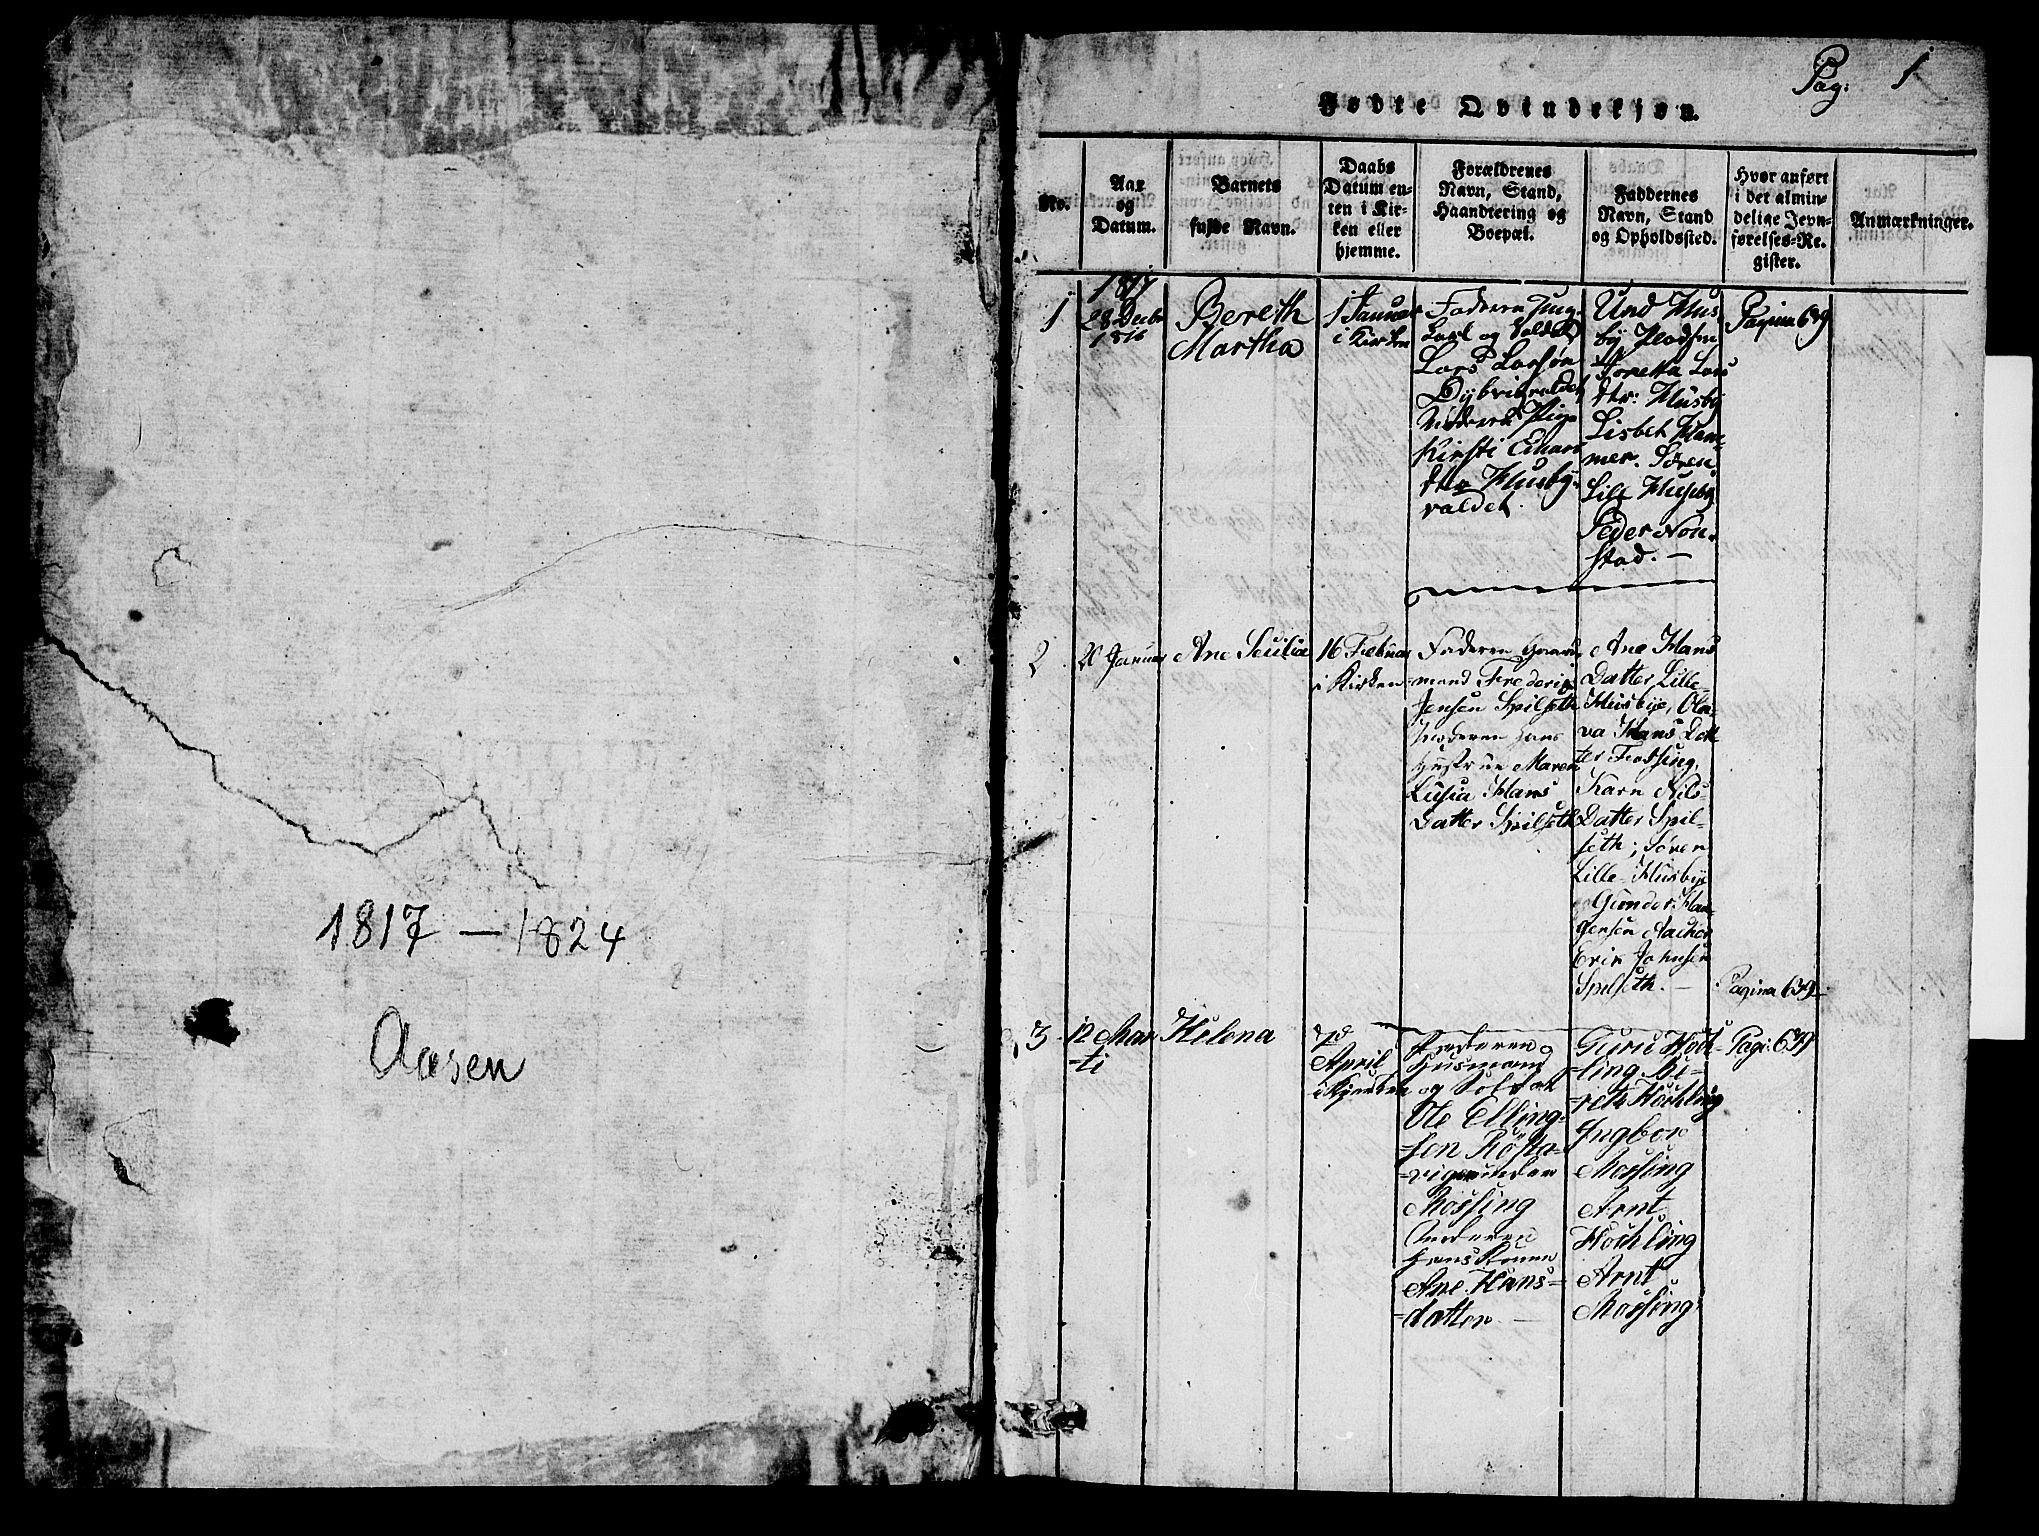 1817 — 1824
Aasen
Pag: 1
Fødte Qvindekjøn.
No.
Aar
og
Datum.
Barnets
fulde Navn.
Daabs
Datum en-
ten i Kir-
ken eller
hjemme.
Forældrenes
Navn, Stand,
Haandtering og
Boepæl.
Faddernes
Navn, Stand
og Opholdssted.
Hvor anført
i det almin-
delige Jevn-
førelses-Re-
gister.
Anmærkninger.
1817
1
28 Decbr
1816
Bereth
Martha
1 Januar
i Kirken
Faderen Ung-
karl og Soldat
Lars Larsøn
Dybvigvaldet
Moderen Pige
Kirsti Einars
dtr Husby-
valdet.
Und Hus
by
Loretta Lars
dtr: Husby
Lisbet Ham-
mer. Søren
Lille Husby
Peder Non-
stad. —
Pagina 639
2
20 Januar
Ane Sicilia
16 Februar
i Kirken
Faderen Gaard-
mand Frederig
Jensen Spilseth
Moderen Hans
Hustrue Maren
Lusia Hans
Datter Spilseth
Ane Hans
Datter Lille-
Husbye, Ole-
va Hans Dat
ter Fossing,
Karn Nils
Datter Spil-
seth; Søren
Lille-Husbye
Gunder Hau-
gensen
Erik Johnsen
Spilseth. —
Pagina 639
3
12 Mar-
ti
Helena
7d
April
i Kjerken
Faderen
Husmand
og Soldat
Ole Elling-
sen Røsta-
vig under
Mossing
Moderen
Hans Kone
Ane Hans-
datter —
Guru Hoch-
ling Be-
reth Hochling
Ingbor
Mossing
Arnt
Hochling
Arnt
Mossing
Pag: 639